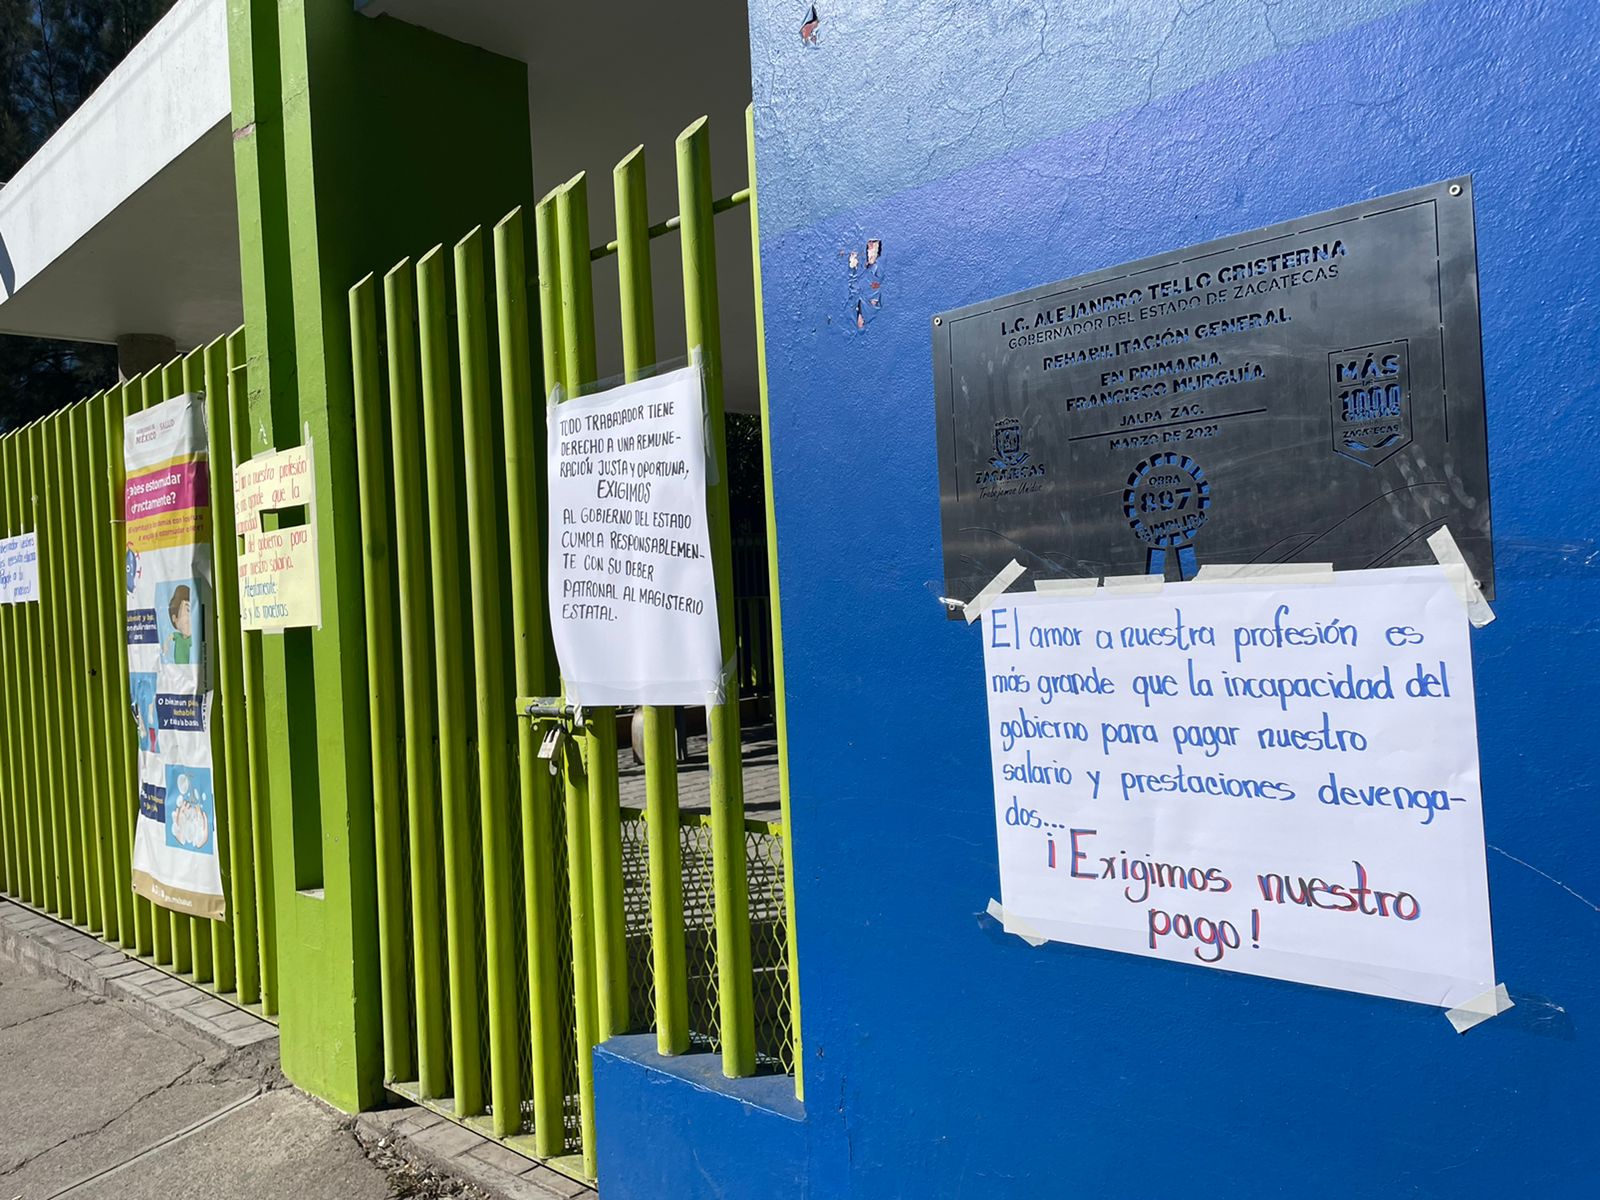 profesiones
MÉXICO
SALUD
¿Sabes estornudar
correctamente?
El amor a nuestra profesión
es más grande que la
incapacidad
del gobierno para
pagar nuestro salario.
Atentamente:
los y las maestras
TODO TRABAJADOR TIENE
DERECHO A UNA REMUNE-
RACIÓN JUSTA Y OPORTUNA,
EXIGIMOS
AL GOBIERNO DEL ESTADO
CUMPLA RESPONSABLEMEN-
TE CON SU DEBER
PATRONAL AL MAGISTERIO
ESTATAL.
L.C. ALEJANDRO TELLO CRISTERNA
GOBERNADOR DEL ESTADO DE ZACATECAS
REHABILITACIÓN GENERAL
EN PRIMARIA
FRANCISCO MURGUÍA
JALPA ZAC.
MARZO DE 2021
ZACATECAS
Trabajemos Unidos
OBRA
897
CUMPLIDA
MÁS
DE
1000
OBRAS
ZACATECAS
El amor a nuestra profesión es
más grande que la incapacidad del
gobierno para pagar nuestro
salario y prestaciones devenga-
dos...
¡Exigimos nuestro
pago!